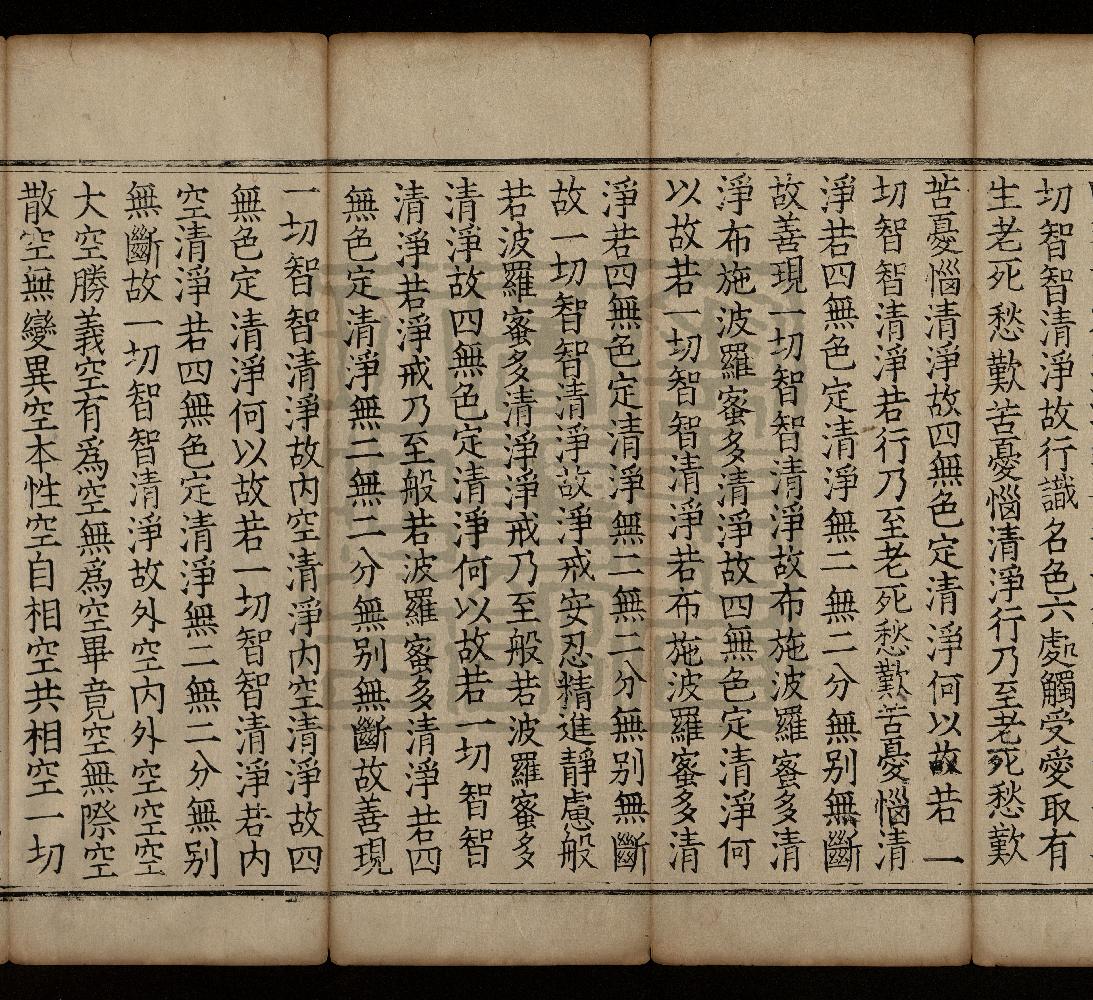 切智智清淨故行識名色六處觸受愛取有
生老死愁歎苦憂惱清淨行乃至老死愁歎
苦憂惱清淨故四無色定清淨何以故若一
切智智清淨若行乃至老死愁歎苦憂惱清
淨若四無色定清淨無二無二分無別無斷
故善現一切智智清淨故布施波羅蜜多清
淨布施波羅蜜多清淨故四無色定清淨何
以故若一切智智清淨若布施波羅蜜多清
淨若四無色定清淨無二無二分無別無斷
故一切智智清淨故淨戒安忍精進靜慮般
若波羅蜜多清淨淨戒乃至般若波羅蜜多
清淨故四無色定清淨何以故若一切智智
清淨若淨戒乃至般若波羅蜜多清淨若四
無色定清淨無二無二分無別無斷故善現
一切智智清淨故內空清淨內空清淨故四
無色定清淨何以故若一切智智清淨若內
空清淨若四無色定清淨無二無二分無別
無斷故一切智智清淨故外空內外空空空
大空勝義空有為空無為空畢竟空無際空
散空無變異空本性空自相空共相空一切